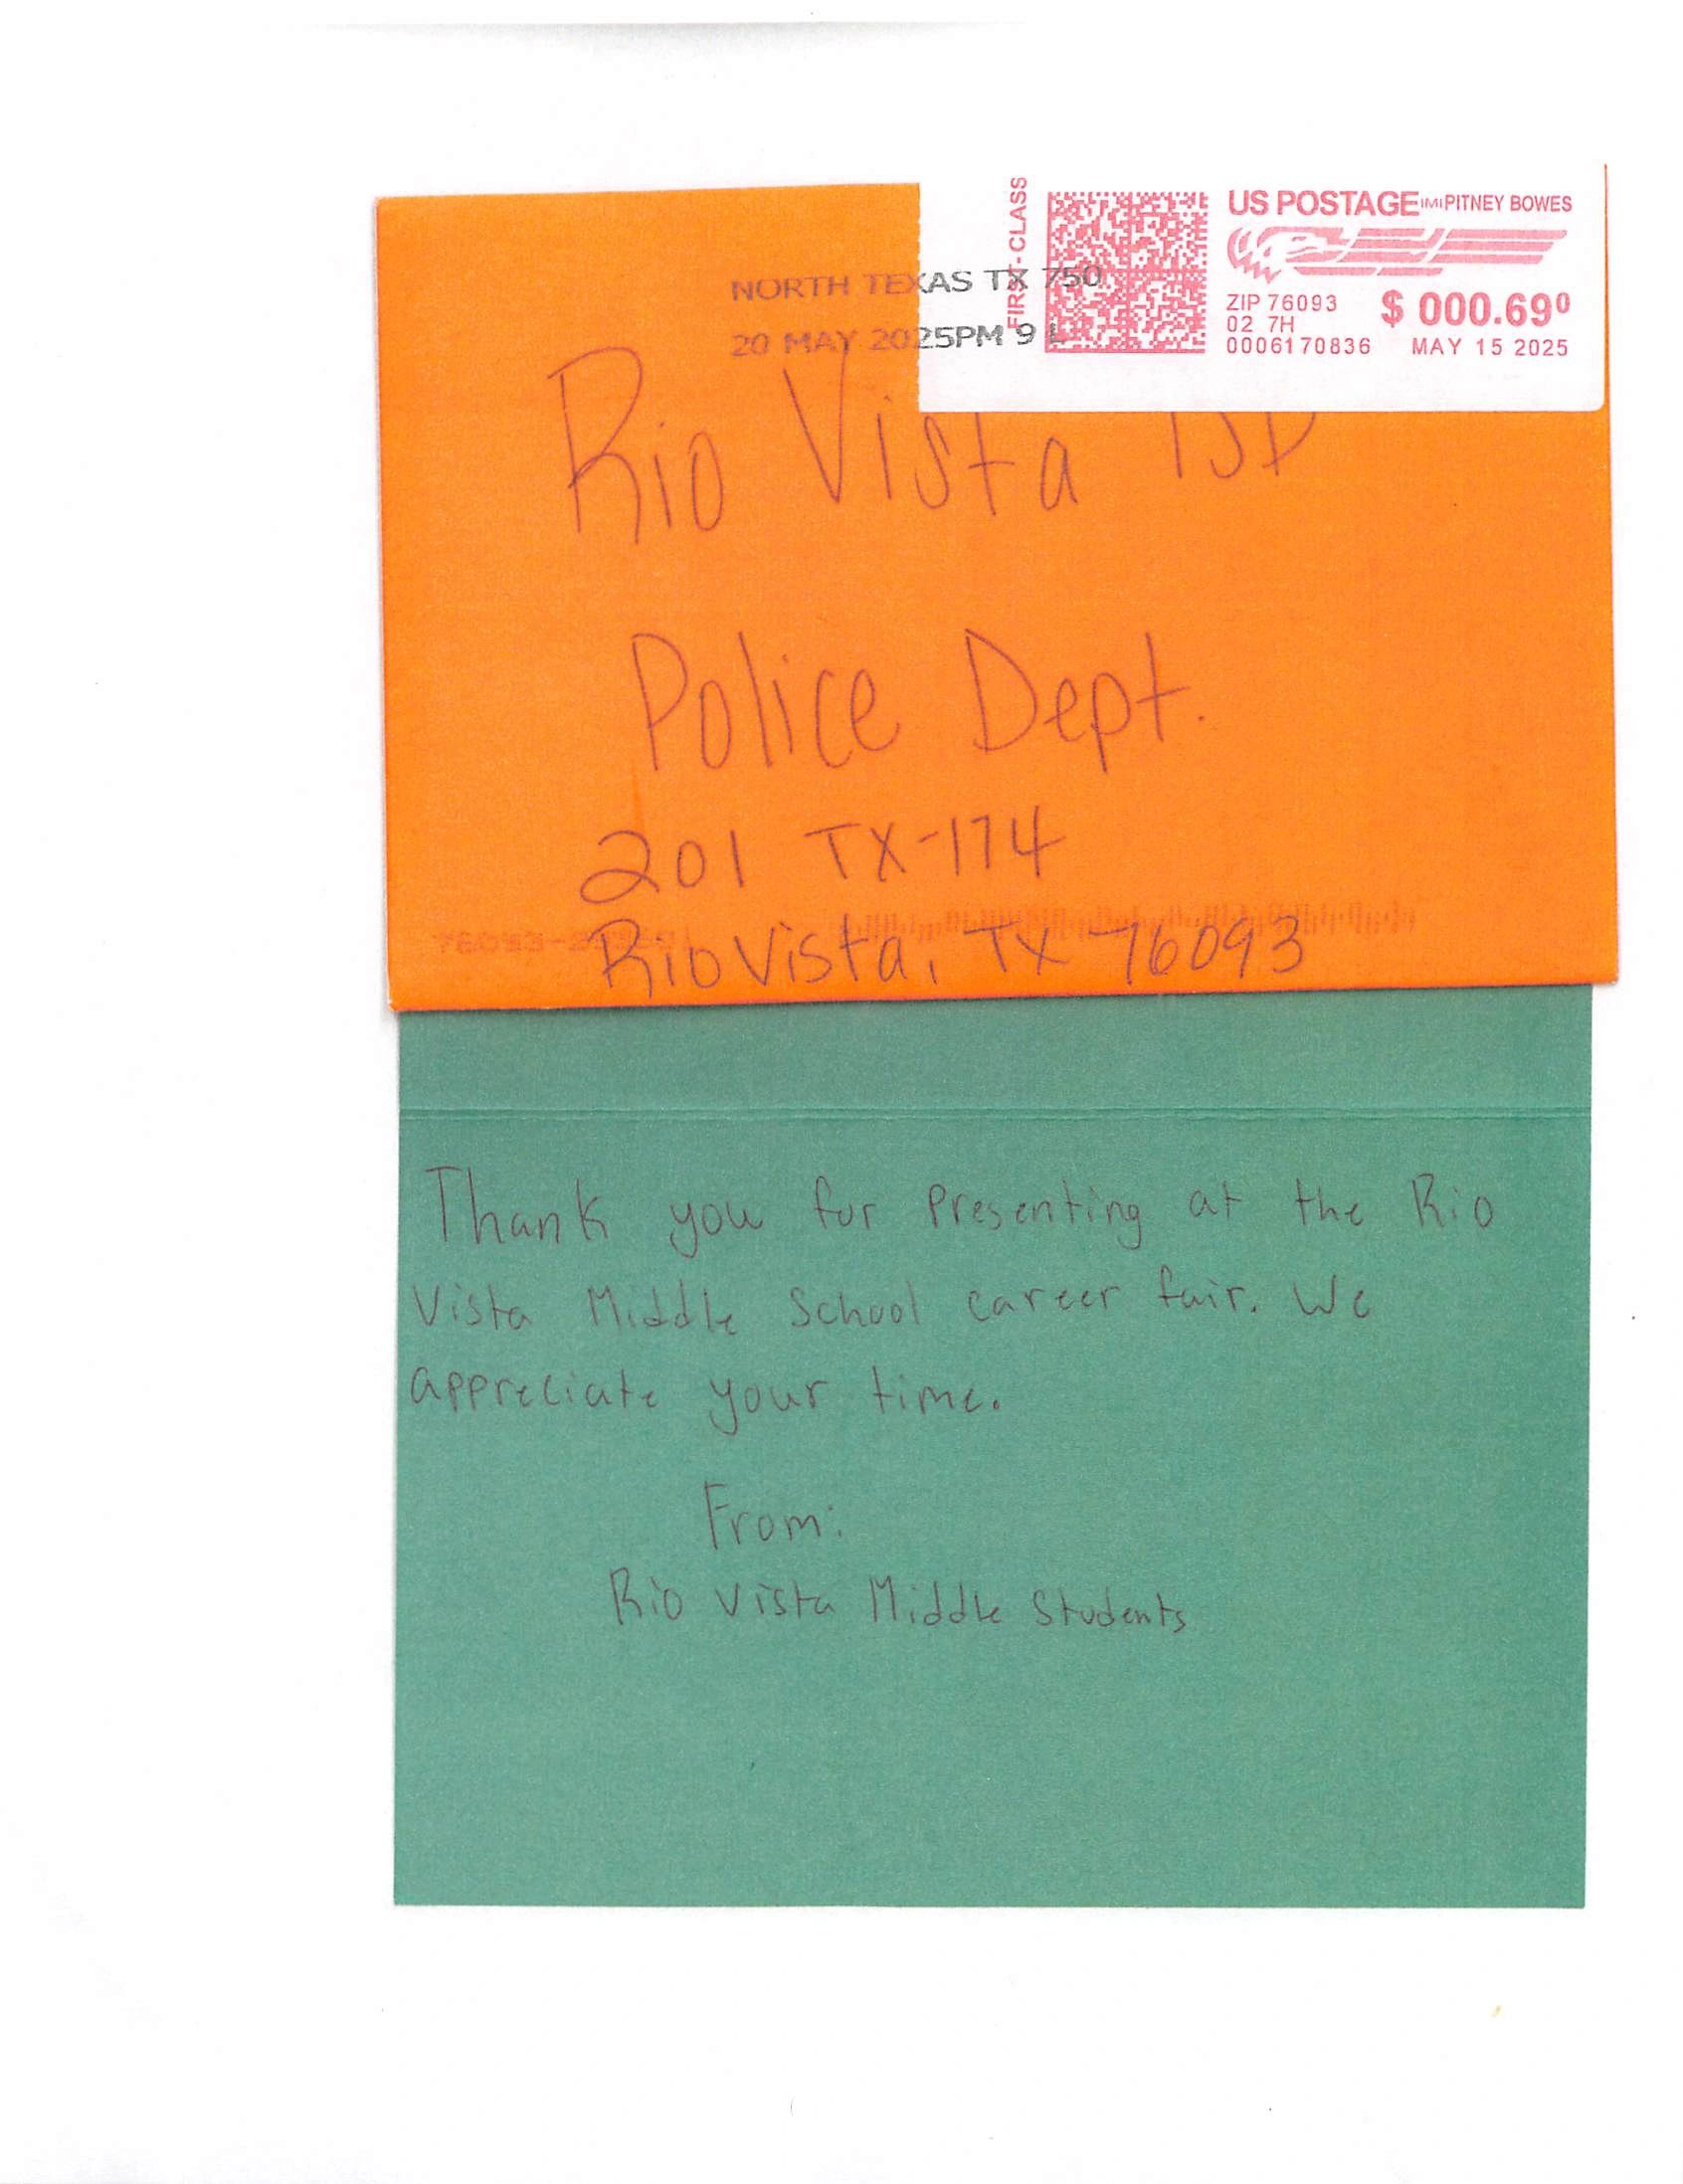 FIRST-CLASS
US POSTAGE IMI PITNEY BOWES
ZIP 76093 $ 000.69⁰
02 7H
0006170836 MAY 15 2025
NORTH TEXAS TX 750
20 MAY 2025PM 9 L
Rio Vista ISD
Police Dept.
201 TX-174
Rio Vista, TX 76093
Thank you for Presenting at the Rio
Vista Middle School career fair. We
appreciate your time.
From:
Rio Vista Middle Students